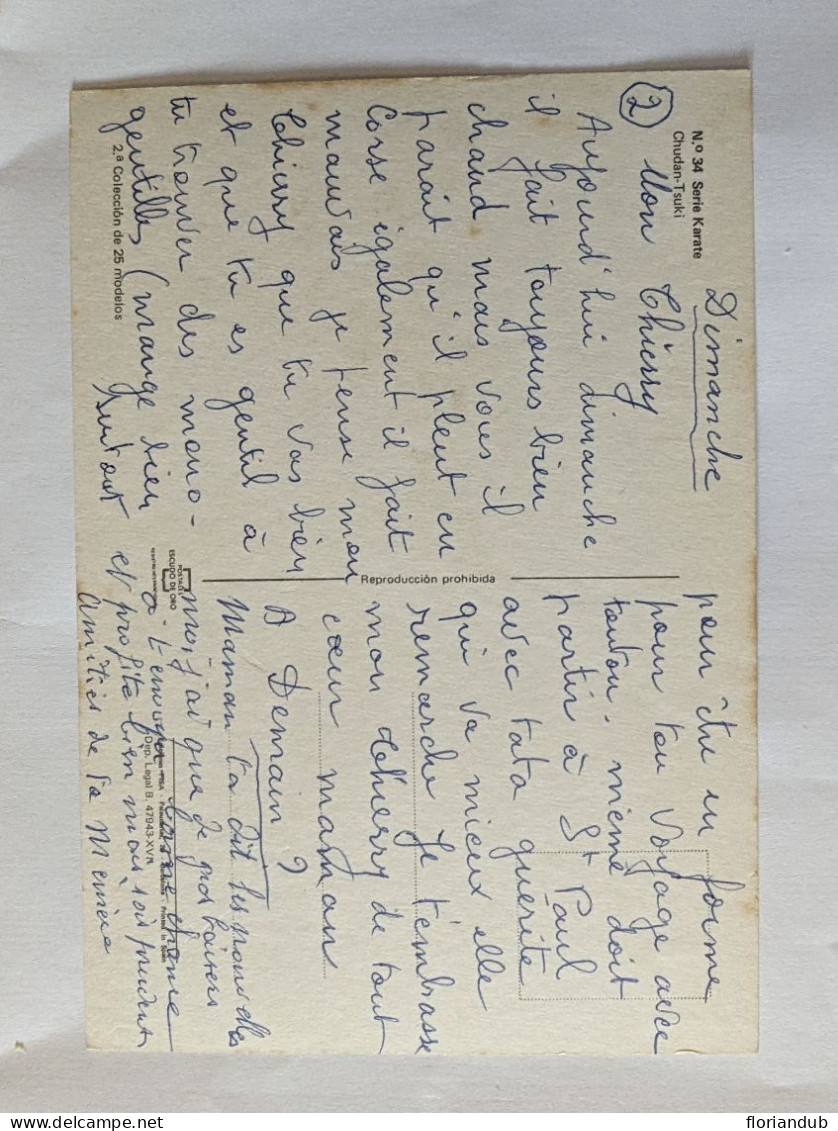 N.º 34 Serie Karate
Chudan-Tsuki
Dimanche
2
Mon Thierry
Aujourd'hui dimanche
il fait toujours bien
chaud mais vous il
parait qu'il pleut en
Corse également il fait
mauvais je pense mon
Thierry que tu vas bien
et que tu es gentil à
tu trouver des mono-
gentilles (mange bien
surtout
2.ª Colección de 25 modelos
Reproducción prohibida
POSTALES
ESCUDO DE ORO
pour être en forme
pour ton voyage avec
tonton. mémé doit
partir à St Paul
avec tata guérite
qui va mieux elle
remarche Je t'embrasse
mon Thierry de tout
cœur maman
A Demain ?
Maman ta dit les nouvelles
moi j'ai que de gros baisers
a t'envoyer
et profite bien mais sois prudent
amitiés de ta Mémère
Dep. Legal B. 47943-XVII
Printed in Spain
floriandub